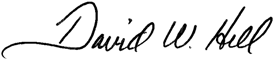 David W. Hill